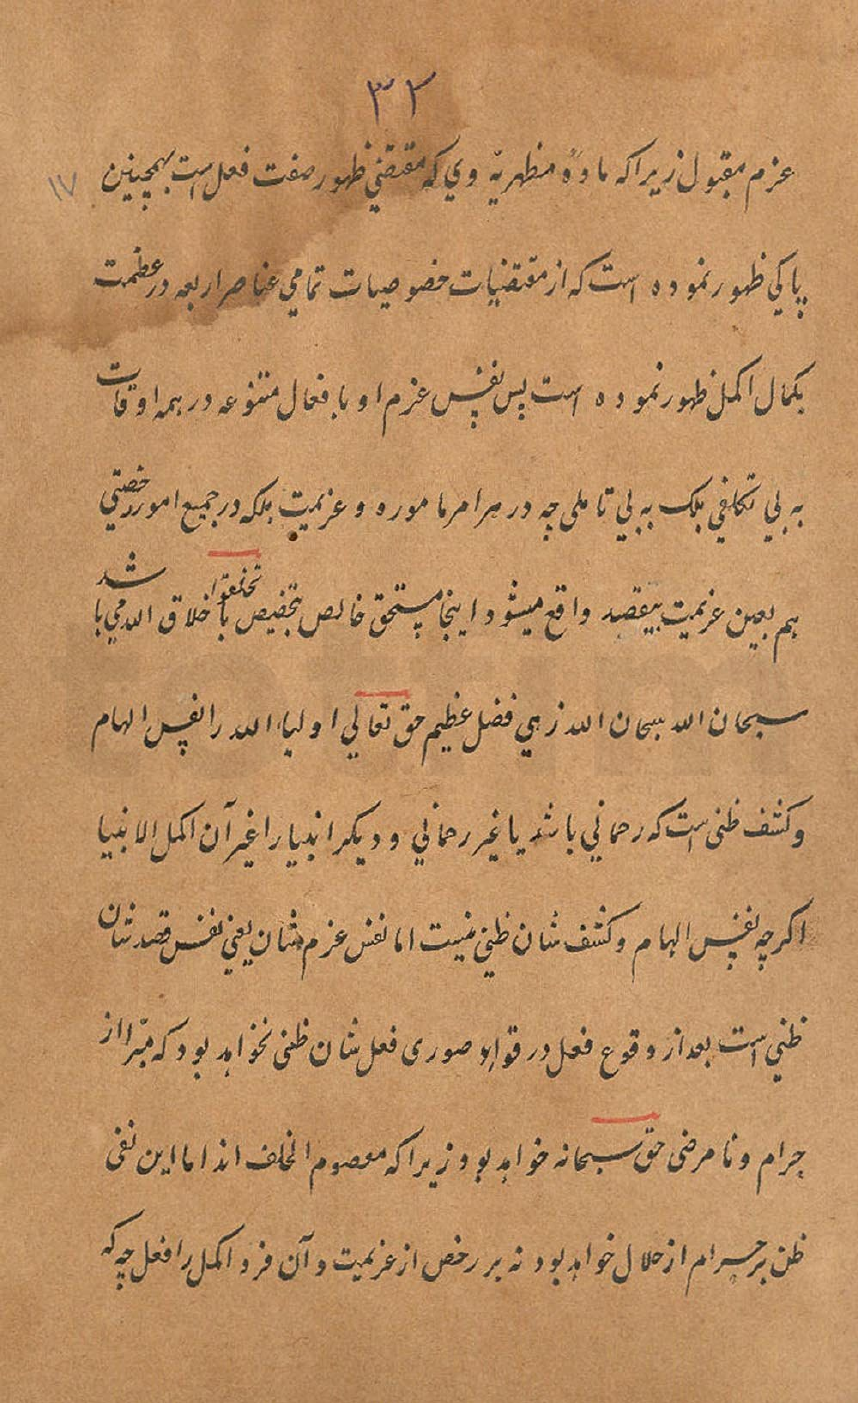 ۳۲
عزم مقبول زیرا که ماده مظهریّه وي که مقتضي ظهور صفت فعل است بهمچنین
۱۷
پاکي ظهور نموده است که از مقتضیات خصوصیات تمامي عناصر اربعه در عظمت
بکمال اکمل ظهور نموده است پس نفس عزم او بافعال متنوعه در همه اوقات
به بي تکلفي بلک به بي تاملي چه در هر امر ماموره و عزیمت بلکه در جمیع امور رخصتي
هم بعین عزیمت بیقصد واقع میشود اینجا مستحق خالص بتخصیص تخلقوا باخلاق الله مي باشد
سبحان الله سبحان الله زهي فضل عظیم حق تعالي اولیاء الله را نفس الهام
و کشف ظنی است که رحماني باشد یا غیر رحماني و دیکر انبیا را غیر آن اکمل الانبیا
اکرچه نفس الهام و کشف شان ظني نیست اما نفس عزم شان یعني نفس قصد شان
ظني است بعد از وقوع فعل در قوابو صوری فعل شان ظنی نخواهد بود که مبّرا از
حرام و نا مرضی حقّ سبحانه خواهد بود زیرا که معصوم الخلف اند اما این نفی
ظن بر حرام از حلال خواهد بود نه بر رخص از عزیمت و آن فرد اکمل را فعل چه که